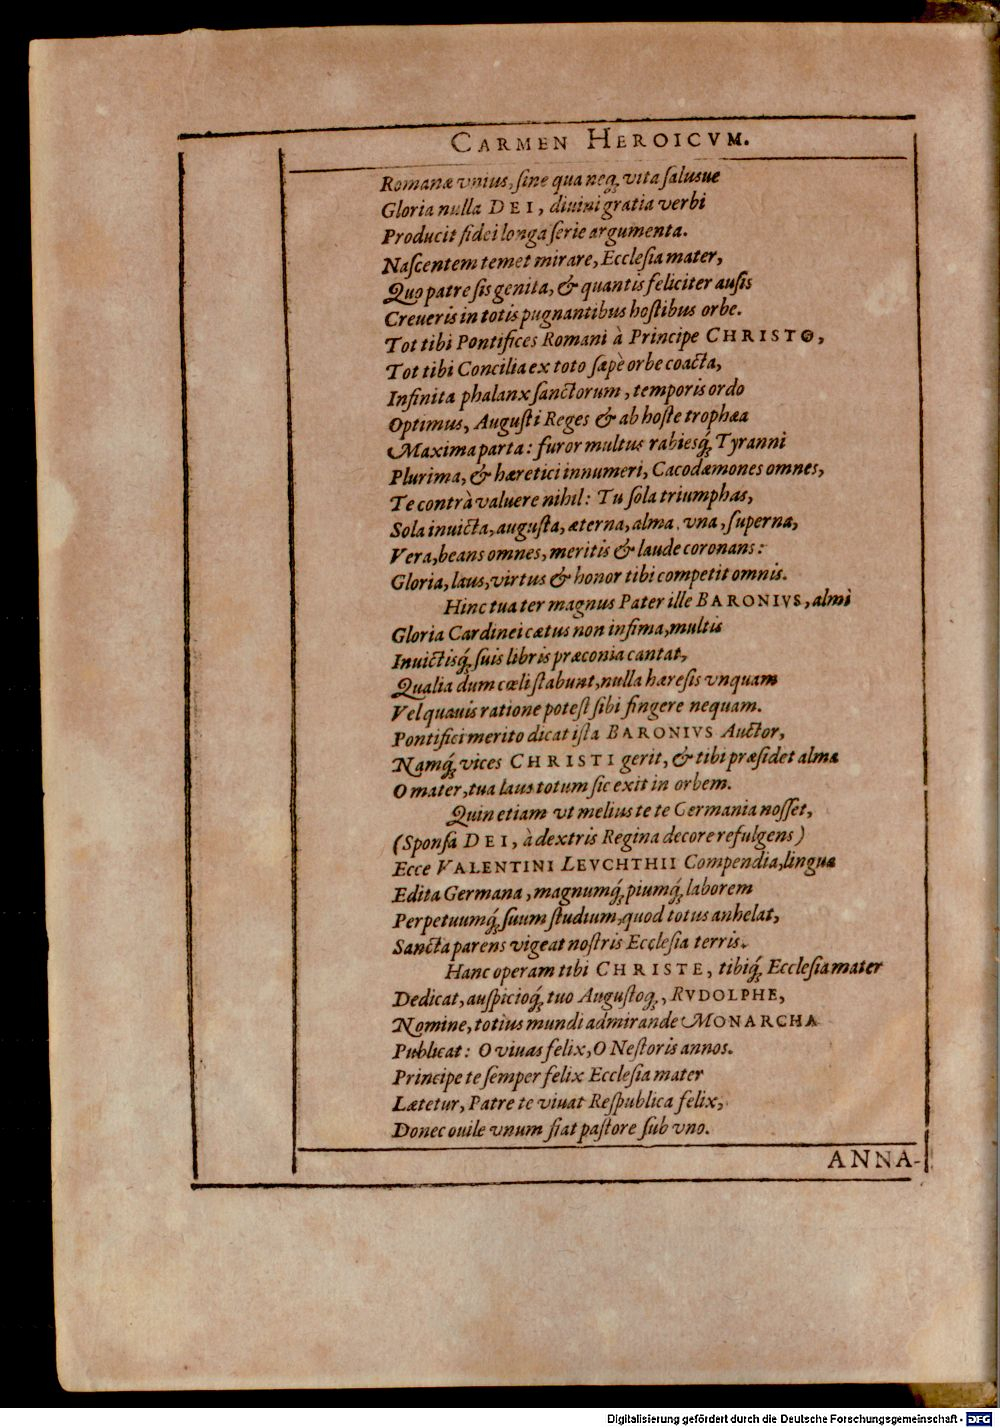 CARMEN HEROICVM.
Romanæ vnius, sine qua neq; vita salusue
Gloria nulla DEI, diuini gratia verbi
Producit fidei longa serie argumenta.
Nascentem temet mirare, Ecclesia mater,
Quo patre sis genita, & quantis feliciter ausis
Creueris in totis pugnantibus hostibus orbe.
Tot tibi Pontifices Romani à Principe CHRISTO,
Tot tibi Concilia ex toto sæpè orbe coacta,
Infinita phalanx sanctorum, temporis ordo
Optimus, Augusti Reges & ab hoste trophæa
Maxima parta: furor multus rabiesq́; Tyranni
Plurima, & hæretici innumeri, Cacodæmones omnes,
Te contrà valuere nihil: Tu sola triumphas,
Sola inuicta, augusta, æterna, alma, vna, superna,
Vera, beans omnes, meritis & laude coronans:
Gloria, laus, virtus & honor tibi competit omnis.
Hinc tua ter magnus Pater ille BARONIVS, almi
Gloria Cardinei cætus non infima, multis
Inuictisq́; suis libris præconia cantat,
Qualia dum cœli stabunt, nulla hæresis vnquam
Vel quauis ratione potest sibi fingere nequam.
Pontifici merito dicat ista BARONIVS Auctor,
Namq́; vices CHRISTI gerit, & tibi præsidet alma
O mater, tua laus totum sic exit in orbem.
Quin etiam vt melius te te Germania nosset,
(Sponsa DEI, à dextris Regina decore refulgens)
Ecce VALENTINI LEVCHTHII Compendia, lingua
Edita Germana, magnumq́; piumq́; laborem
Perpetuumq́; suum studium, quod totus anhelat,
Sancta parens vigeat nostris Ecclesia terris.
Hanc operam tibi CHRISTE, tibiq́; Ecclesia mater
Dedicat, auspicioq́; tuo Augustoq;, RVDOLPHE,
Nomine, totius mundi admirande MONARCHA
Publicat: O viuas felix, O Nestoris annos.
Principe te semper felix Ecclesia mater
Lætetur, Patre te viuat Respublica felix,
Donec ouile vnum fiat pastore sub vno.
ANNA-
Digitalisierung gefördert durch die Deutsche Forschungsgemeinschaft - DFG